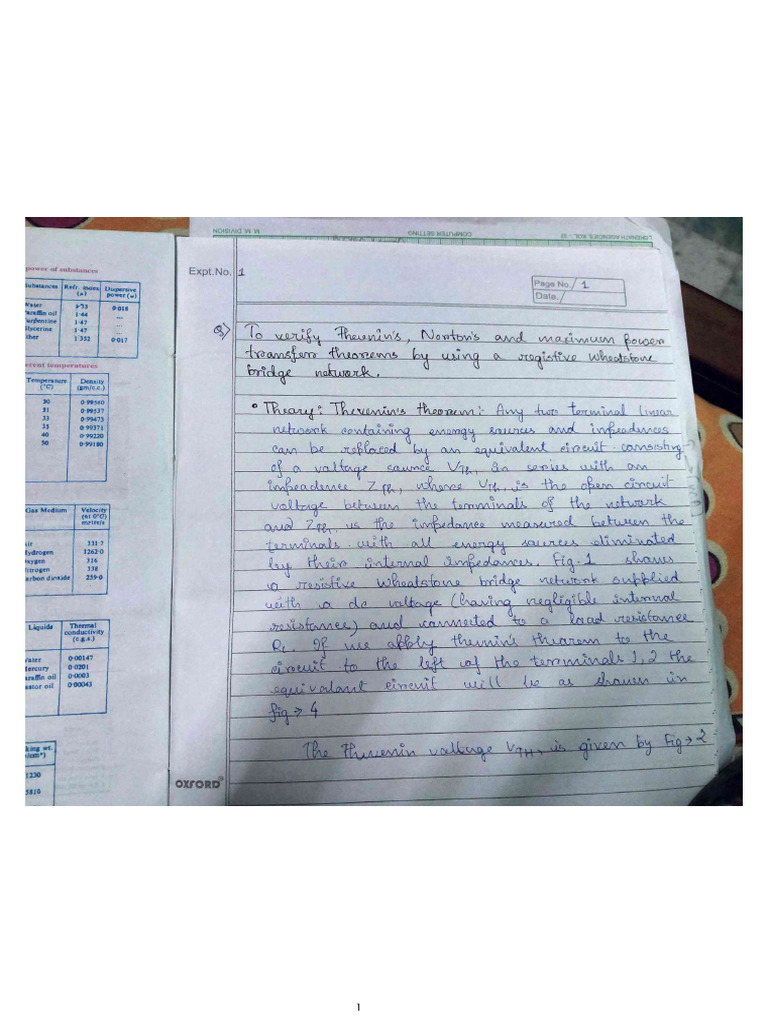 LOKENATH AGENCIES, KOL - 12
COMPUTER SETTING
M. M. DIVISION
power of substances
Substances
Refr. index
(μ)
Dispersive
power (ω)
Water
1·33
0·018
Paraffin oil
1·44
...
Turpenzine
1·47
...
Glycerine
1·47
...
Ether
1·352
0·017
erent temperatures
Temperature
(°C)
Density
(gm/c.c.)
30
0·99560
31
0·99537
33
0·99473
35
0·99371
40
0·99220
50
0·99180
Gas Medium
Velocity
(at 0°C)
metres/s
Air
331·7
Hydrogen
1262·0
Oxygen
316
Nitrogen
338
Carbon dioxide
259·0
Liquids
Thermal
conductivity
(c.g.s.)
Water
0·00147
Mercury
0·0201
Paraffin oil
0·0003
Castor oil
0·00043
king wt.
/cm²)
1230
5810
OXFORD
Expt.No. 1
Page No. 1
Date.
Q) To verify Thevenin's, Norton's and maximum power
transfer theorems by using a registive wheatstone
bridge network.
• Theory: Thevenin's theorem:- Any two terminal linear
network containing energy sources and impedances
can be replaced by an equivalent circuit consisting
of a voltage source VTh, in series with an
impeadence ZTh, where VTh, is the open circuit
voltage between the terminals of the network
and ZTh is the impedance measured between the
terminals with all energy sources eliminated
by their internal impedances. Fig-1 shows
a resistive wheatstone bridge network supplied
with a dc voltage (having negligible internal
resistance) and connected to a load resistance
RL. If we apply thevnin's theorem to the
circuit to the left of the terminals 1, 2 the
equivalent circuit will be as shown in
fig → 4
The Thevenin voltage VTH, is given by Fig → 2
1